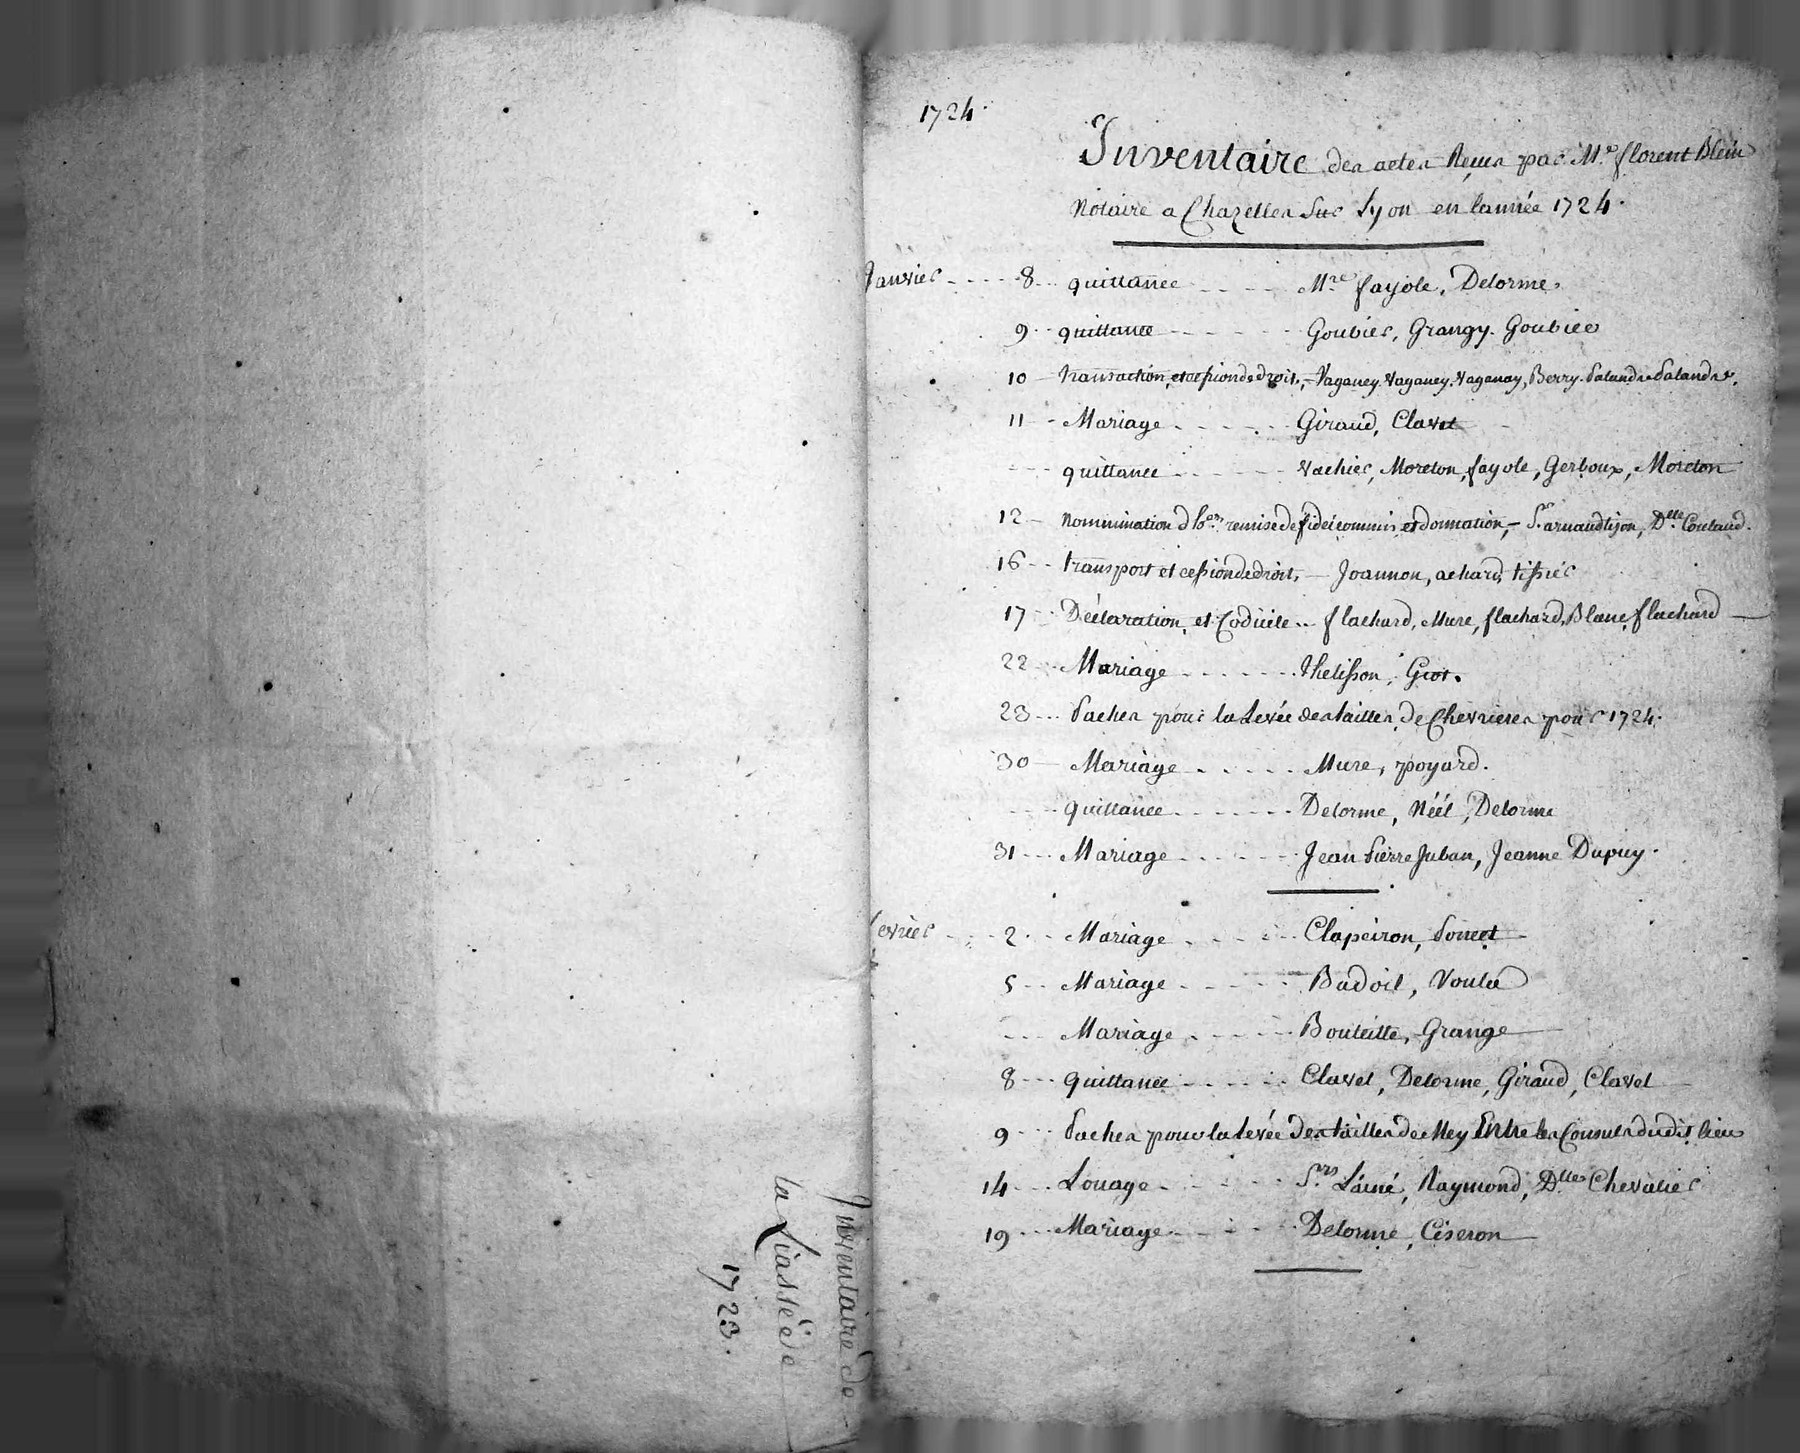 Inventaire de
la Liassée de
1723.
1724.
Inventaire des actes Reçus par Me. florent Blein
Notaire a Chazelles sur Lyon en lannée 1724.
Janvier 8 quittance Mre fayole, Delorme.
9 quittance Goubier, Grangy. Goubier
10 transaction, et cession de droit, Vaganey. Vaganey. Vaganay, Berry. Palandre Palandre.
11 Mariage Giraud, Clavel
quittance Vachier, Moreton, fayole, Gerboux, Moreton
12 Nommination d'h.er remise de fideicommis et donnation, Sr. arnaud tison, Dlle Coutaud.
16 transport et cession de droit, Joannon, achard, tissier
17 Déclaration, et Codicile flachard, Mure, flachard, Blanc, flachard
22 Mariage thelisson, Grot.
23 Paches pour la Levée des tailles, de Chevrieres pour 1724.
30 Mariage Mure, poyard.
quittance Delorme, Néél, Delorme
31 Mariage Jean Pierre Juban, Jeanne Dupuy.
fevrier 2 Mariage Clapeiron, Poncet
5 Mariage Badoil, Voulu
Mariage Bouteille, Grange
8 quittance Clavel, Delorme, Giraud, Clavel
9 Paches pour la Levée des tailles de Mey Entre les Consuls dudit lieu
14 Louage Srs Lainé, Raymond, Dlle Chevalier
19 Mariage Delorme, Ciseron